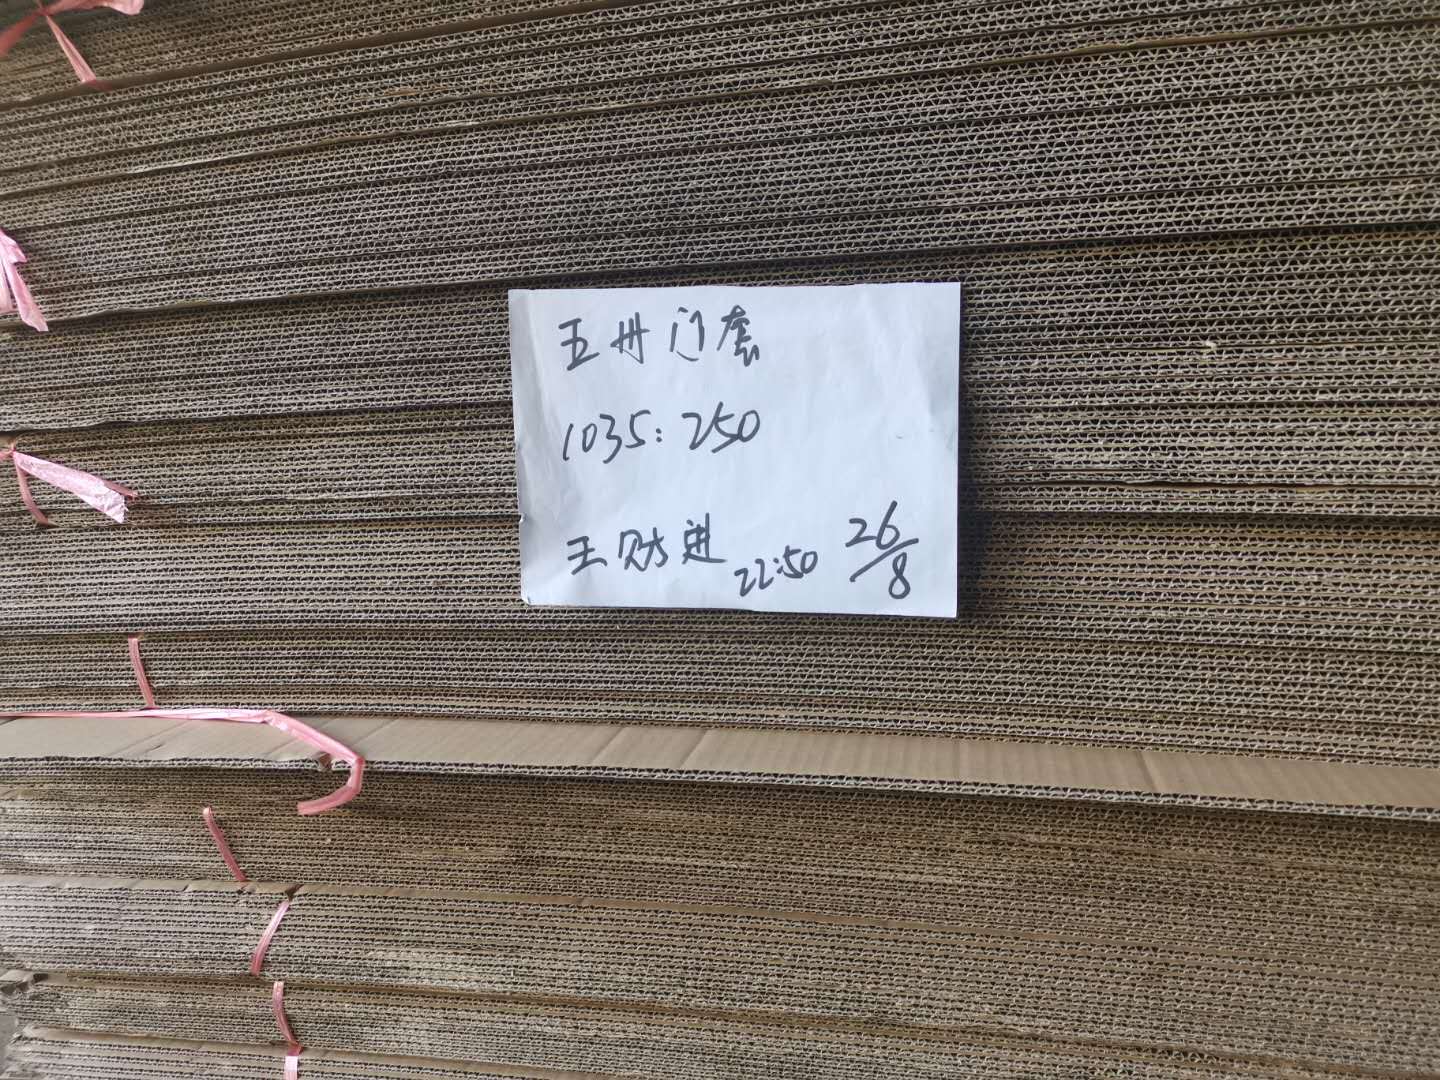 五州门套
1035:250
王财进 22:50 26/8